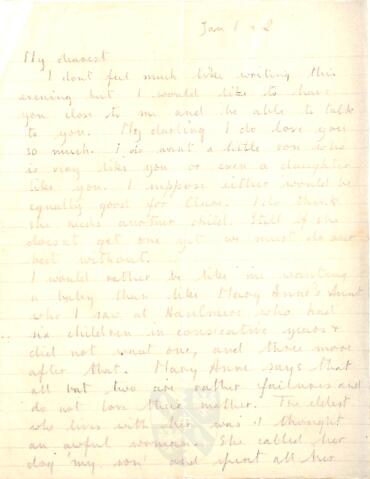 Jan 1 + 2
My dearest
I dont feel much like writing this
evening but I would like to have
you close to me and be able to talk
to you. My darling I do love you
so much. I do want a little son who
is very like you or even a daughter
like you. I suppose either would be
equally good for Clare. I do think
she needs another child. Still if she
doesnt get one yet we must do our
best without.
I would rather be like me wanting
a baby than like Mary Anne's Aunt
who I saw at who had
six children in consecutive years &
did not want one, and three more
after that. Mary Anne says that
all but two are rather failures and
do not love their mother. The eldest
who lives with her was I thought
an awful woman. She called her
dog 'my son' and spent all her